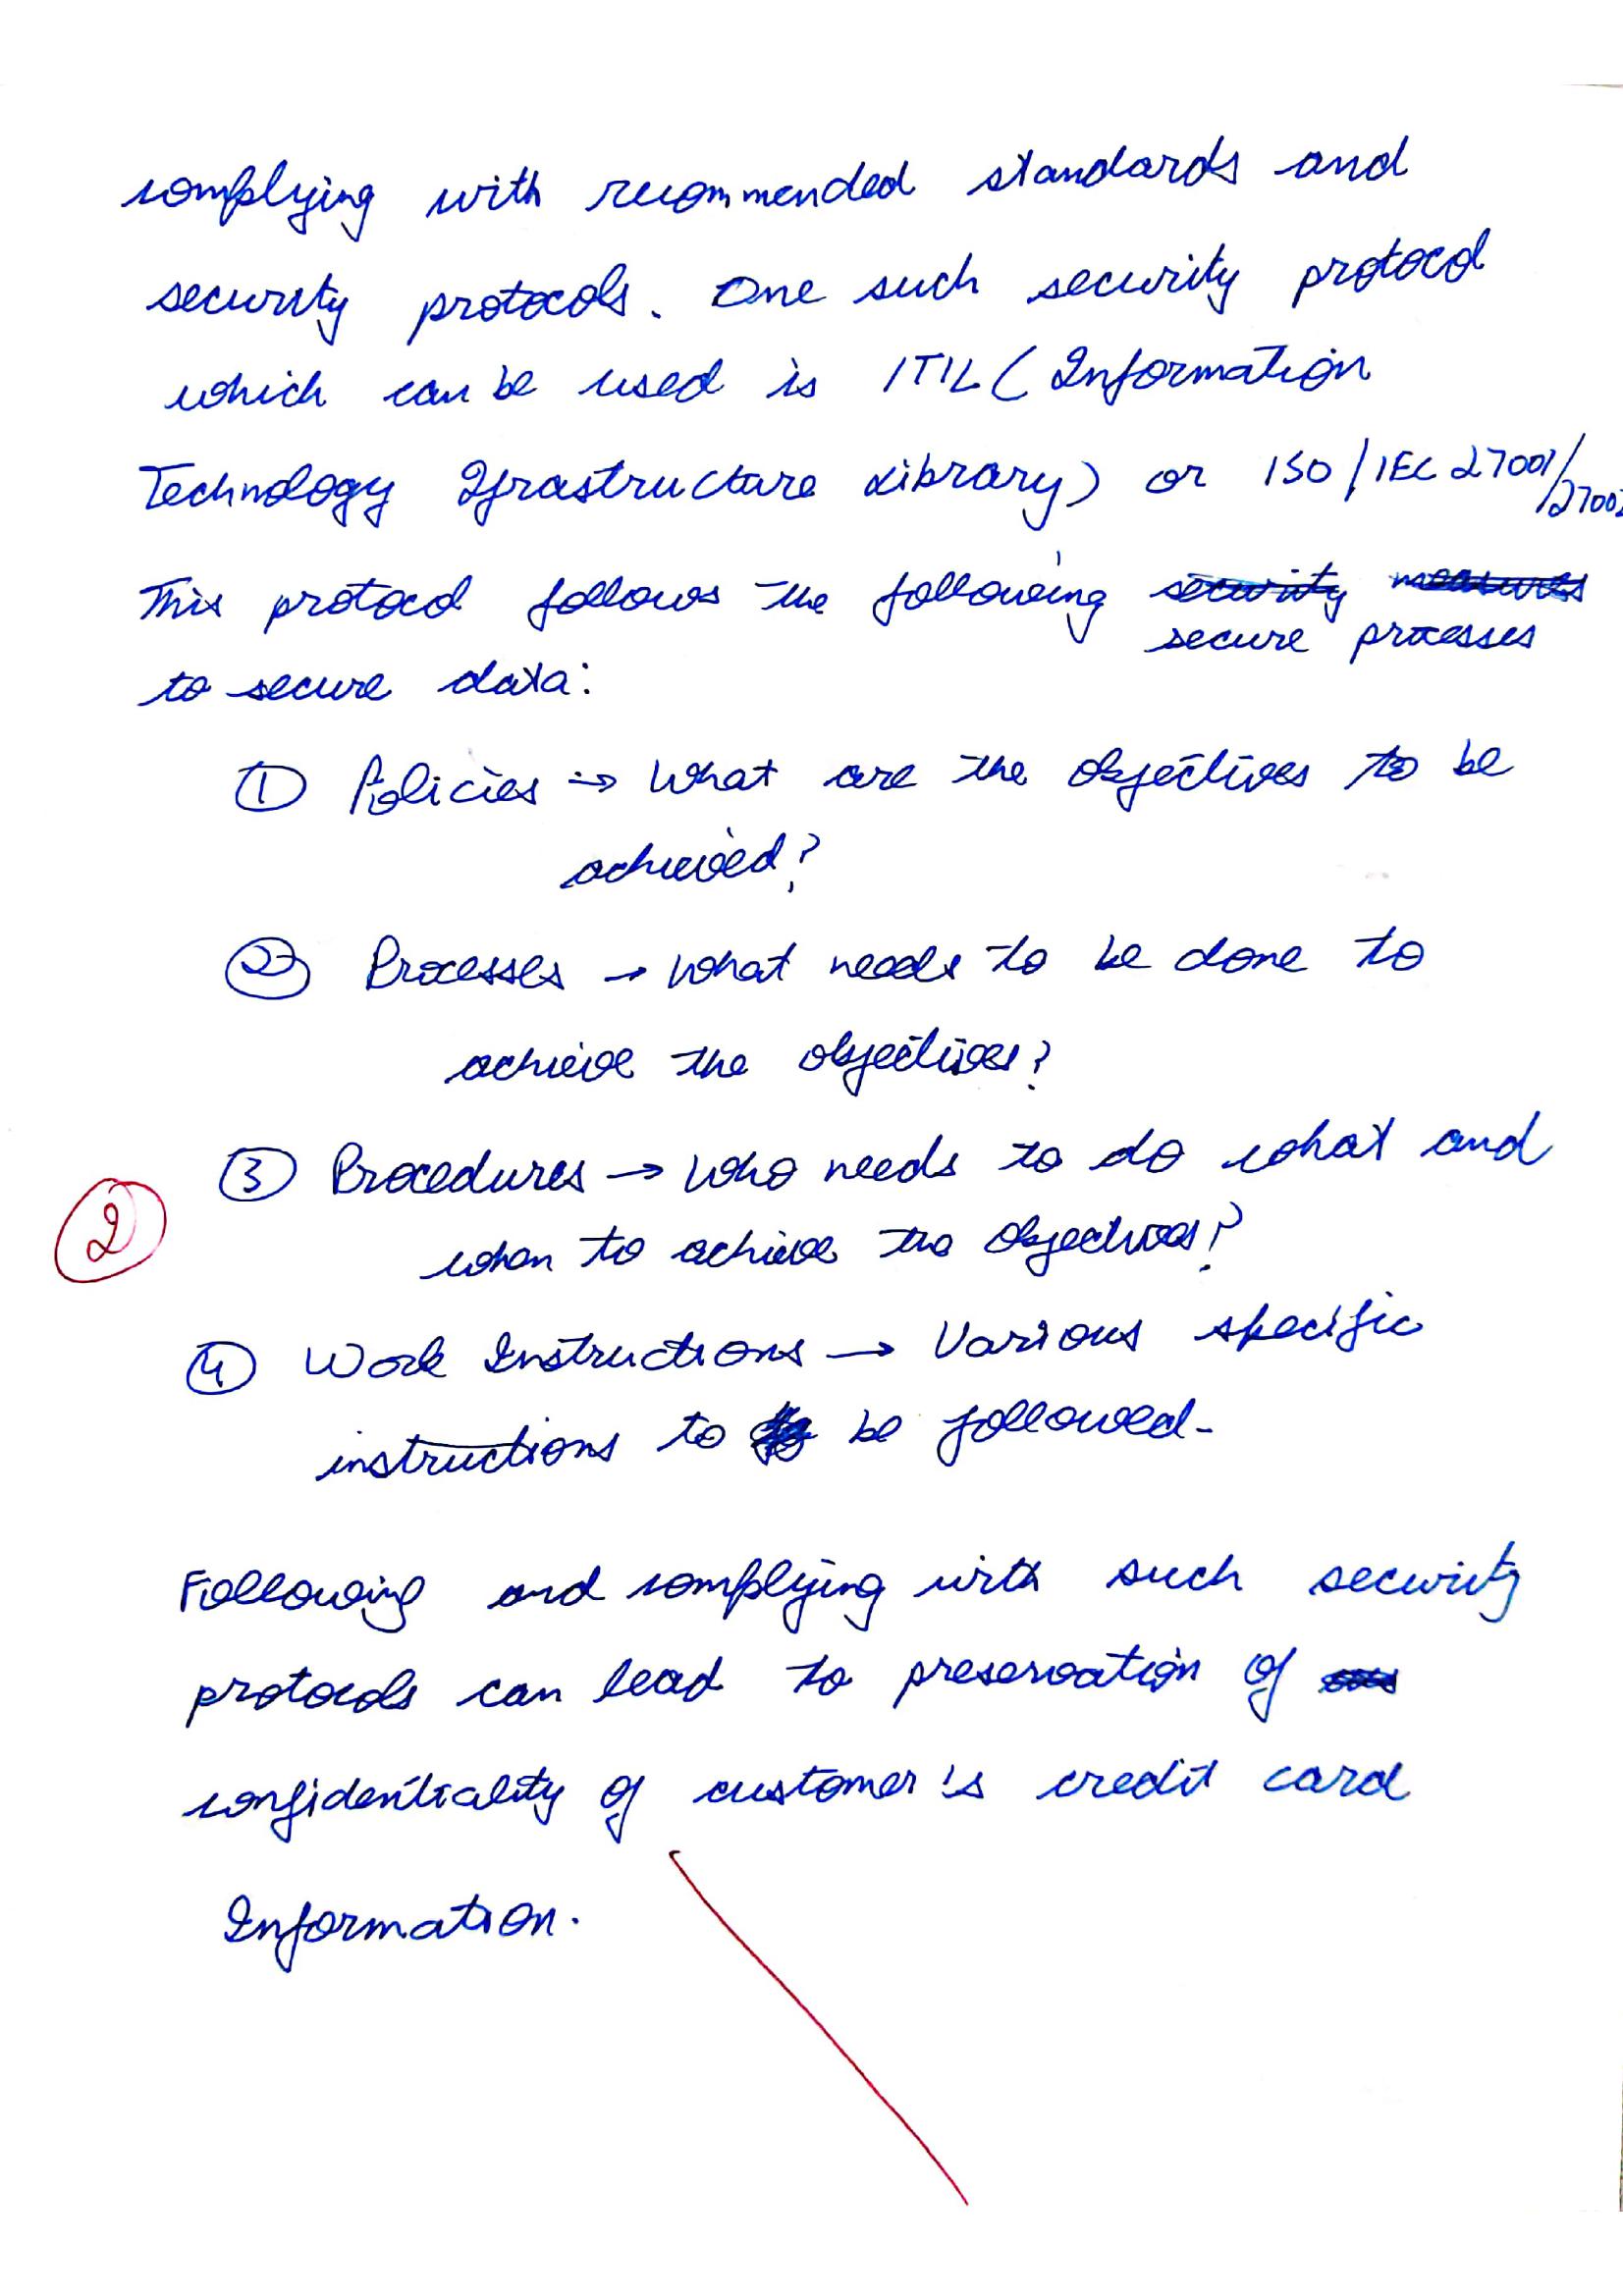 complying with recommended standards and
security protocols. One such security protocol
which can be used is ITIL (Information
Technology Ifrastructure Library) or ISO/IEC 27001/
27002
This protocol follows the following security measures
secure processes
to secure data:
① Policies → What are the objectives to be
achieved?
② Processes → What needs to be done to
achieve the objectives?
③ Procedures → Who needs to do what and
2
when to achieve the objectives?
④ Work Instructions → Various specific
instructions to be followed.
Following and complying with such security
protocols can lead to preservation of
confidentiality of customer's credit card
Information.